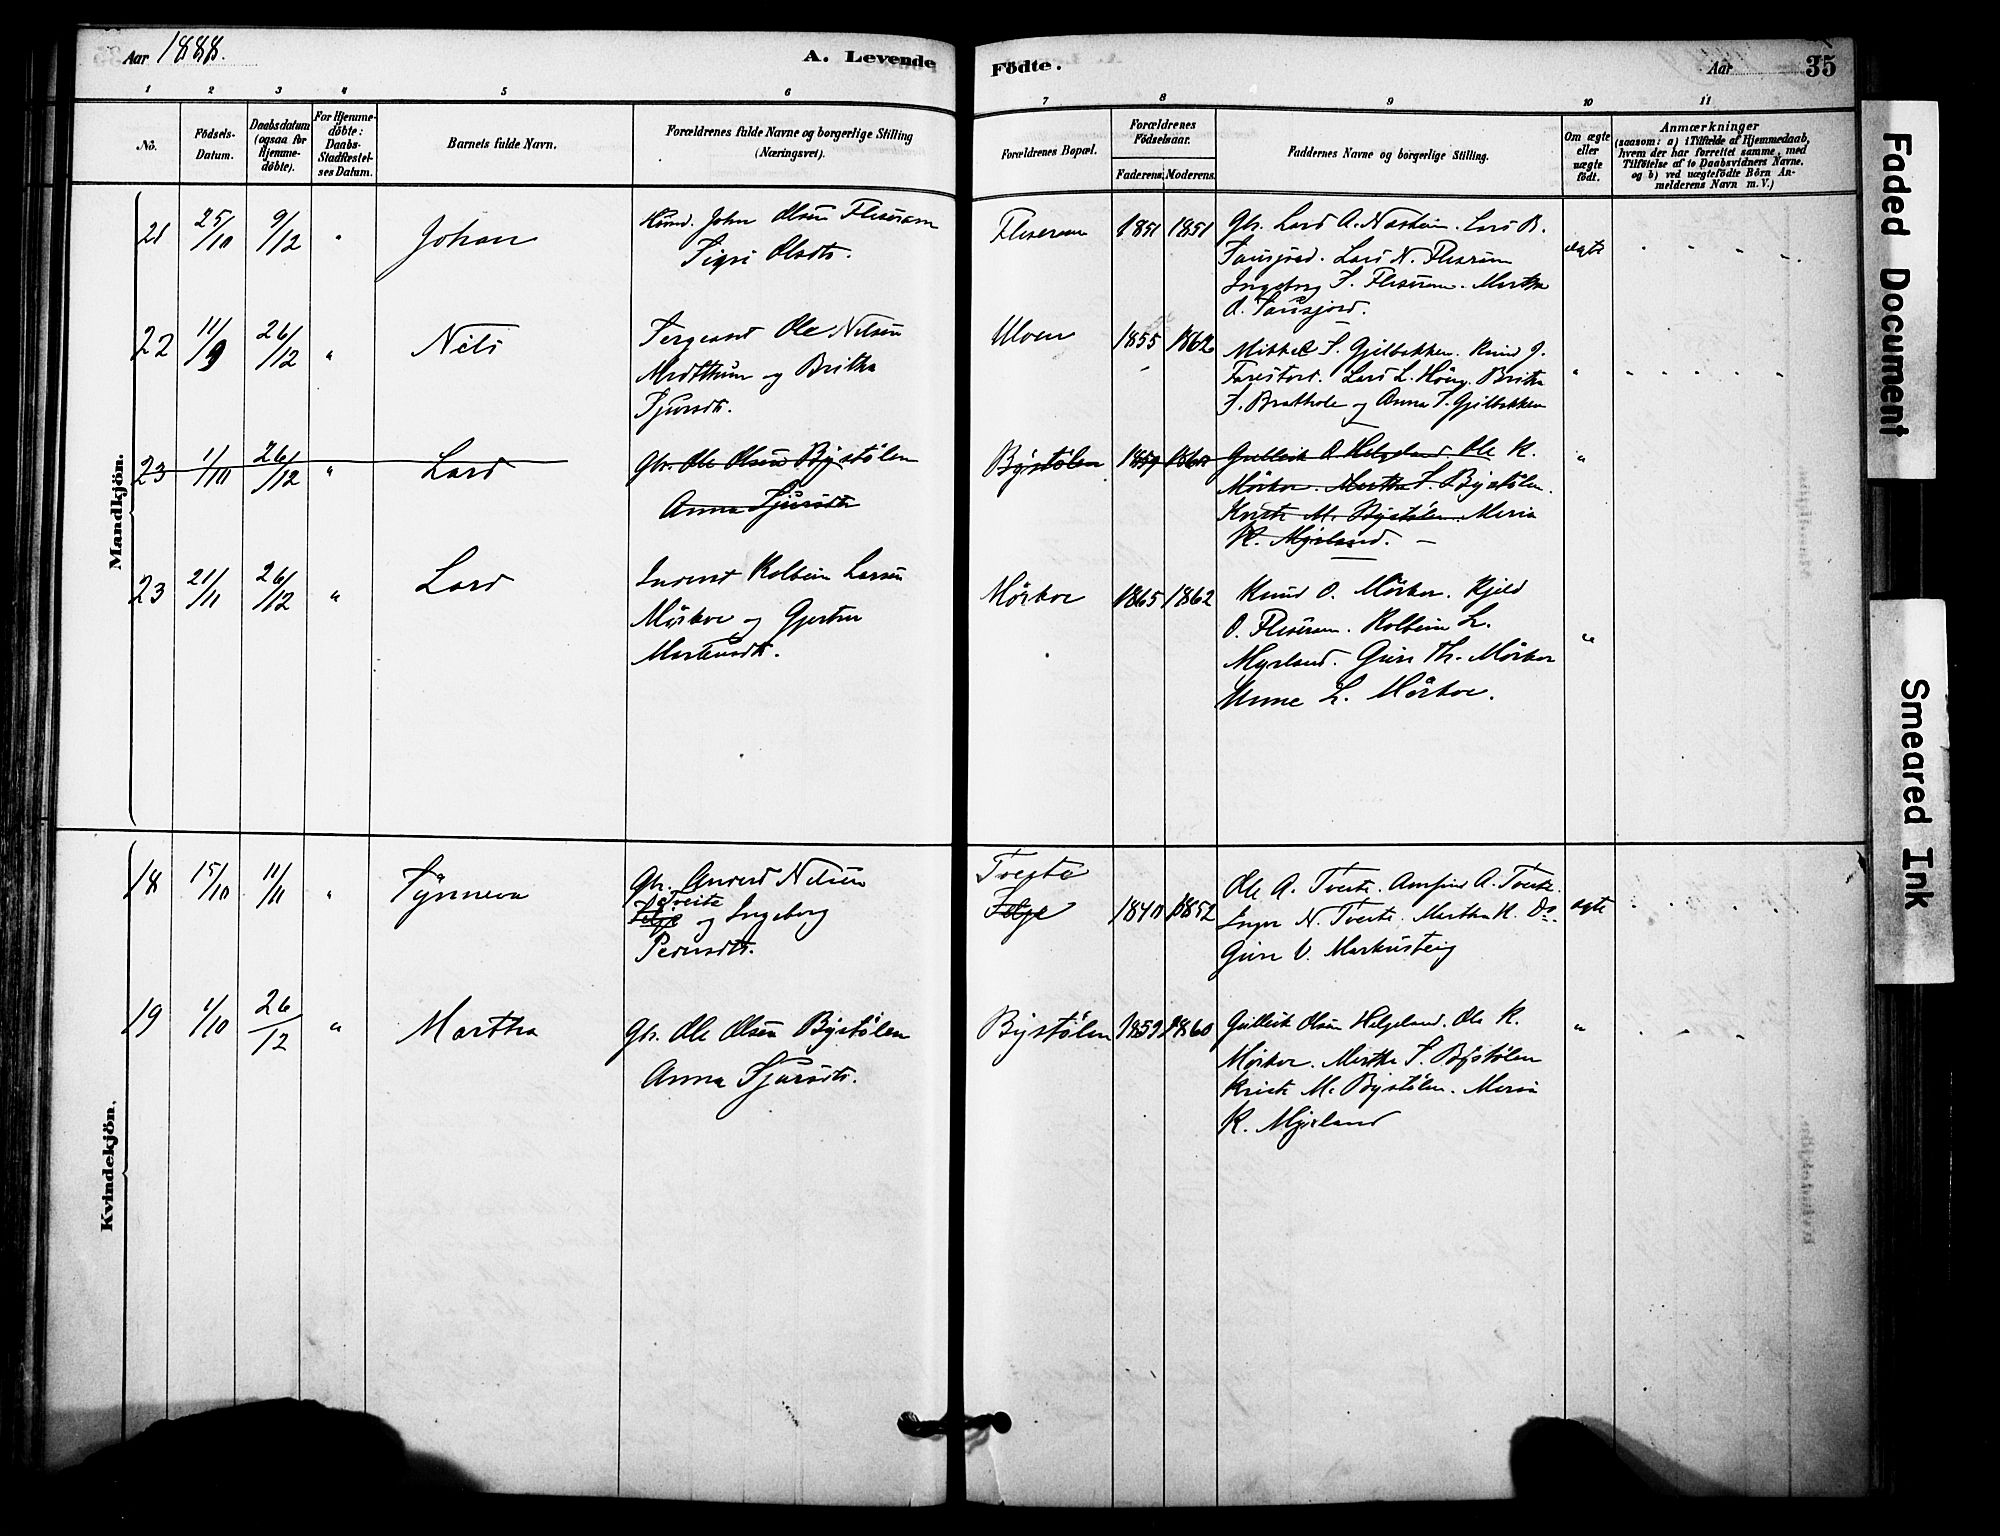 Aar 1888.
A. Levende Födte.
Aar
35
1 2 3 4 5 6 7 8 9 10 11
No.
Födsels-Datum.
Daabsdatum (ogsaa for Hjemme-döbte).
For Hjemme-döbte: Daabs-Stadfæstel-ses Datum.
Barnets fulde Navn.
Forældrenes fulde Navne og borgerlige Stilling (Næringsvei).
Forældrenes Bopæl.
Forældrenes Födselsaar.
Faderens. Moderens.
Faddernes Navne og borgerlige Stilling.
Om ægte eller uægte födt.
Anmærkninger
(saasom: a) i Tilfælde af Hjemmedaab, hvem der har forrettet samme, med Tilföielse af to Daabsvidners Navne. og b) ved uægtefödte Börn An-melderens Navn m. V.)
Mandkjön.
21 25/10 9/12 " Johan
Huusmd. John Olsen Fliseram
Sigri Olsdtr.
Fliseram 1851 1851
Gbr. Lars A. Nesheim. Lars B.
Lars N. Fliseram
Ingeborg S. Fliseram. Martha
O.
ægte
22 11/9 26/12 " Nils
Sergeant Ole Nilsen
Medtthun og Britha
Sjursdtr.
Ulven 1855 1862
Mikkel S. Gjilbakken. Knud J.
Lars L. Höug. Britha
S. Brathole og Anna S. Gjilbakken
"
23 1/10 26/12 " Lars
Gbr. Ole Olsen Bystölen
Anna Sjursdtr
Bystölen 1859 1860
Gulleik O. Helgeland. Ole K.
Mörkve. Martha S. Bystölen.
Kristi M. Bystölen. Maria
K. Myrland. –
"
23 21/11 26/12 " Lars
Inderst Kolbein Larsen
Mörkve og Gjertru
Martensdtr.
Mörkve 1865 1862
Knud O. Mörkve. Kjeld
O. Fliseram. Kolbein L.
Myrland. Guri Th. Mörkve
Unne L. Mörkve.
"
Kvindekjön.
18 15/10 11/11 " Synneva
Gbr. Anders Nilsen
Tveite
og Ingeborg
Pedersdtr.
Tveite
1840 1852
Ole A. Tveite. Amfind A. Tveite.
Inger N. Tveite. Martha K. Do.
Guri O. Markusteig
ægte
19 1/10 26/12 " Martha
Gbr. Ole Olsen Bystölen
Anna Sjursdtr.
Bystölen 1859 1860
Gulleik Olsen Helgeland. Ole K.
Mörkve. Martha S. Bystölen
Kristi M. Bystölen. Maria
K. Myrland
"
Faded Document
Smeared Ink